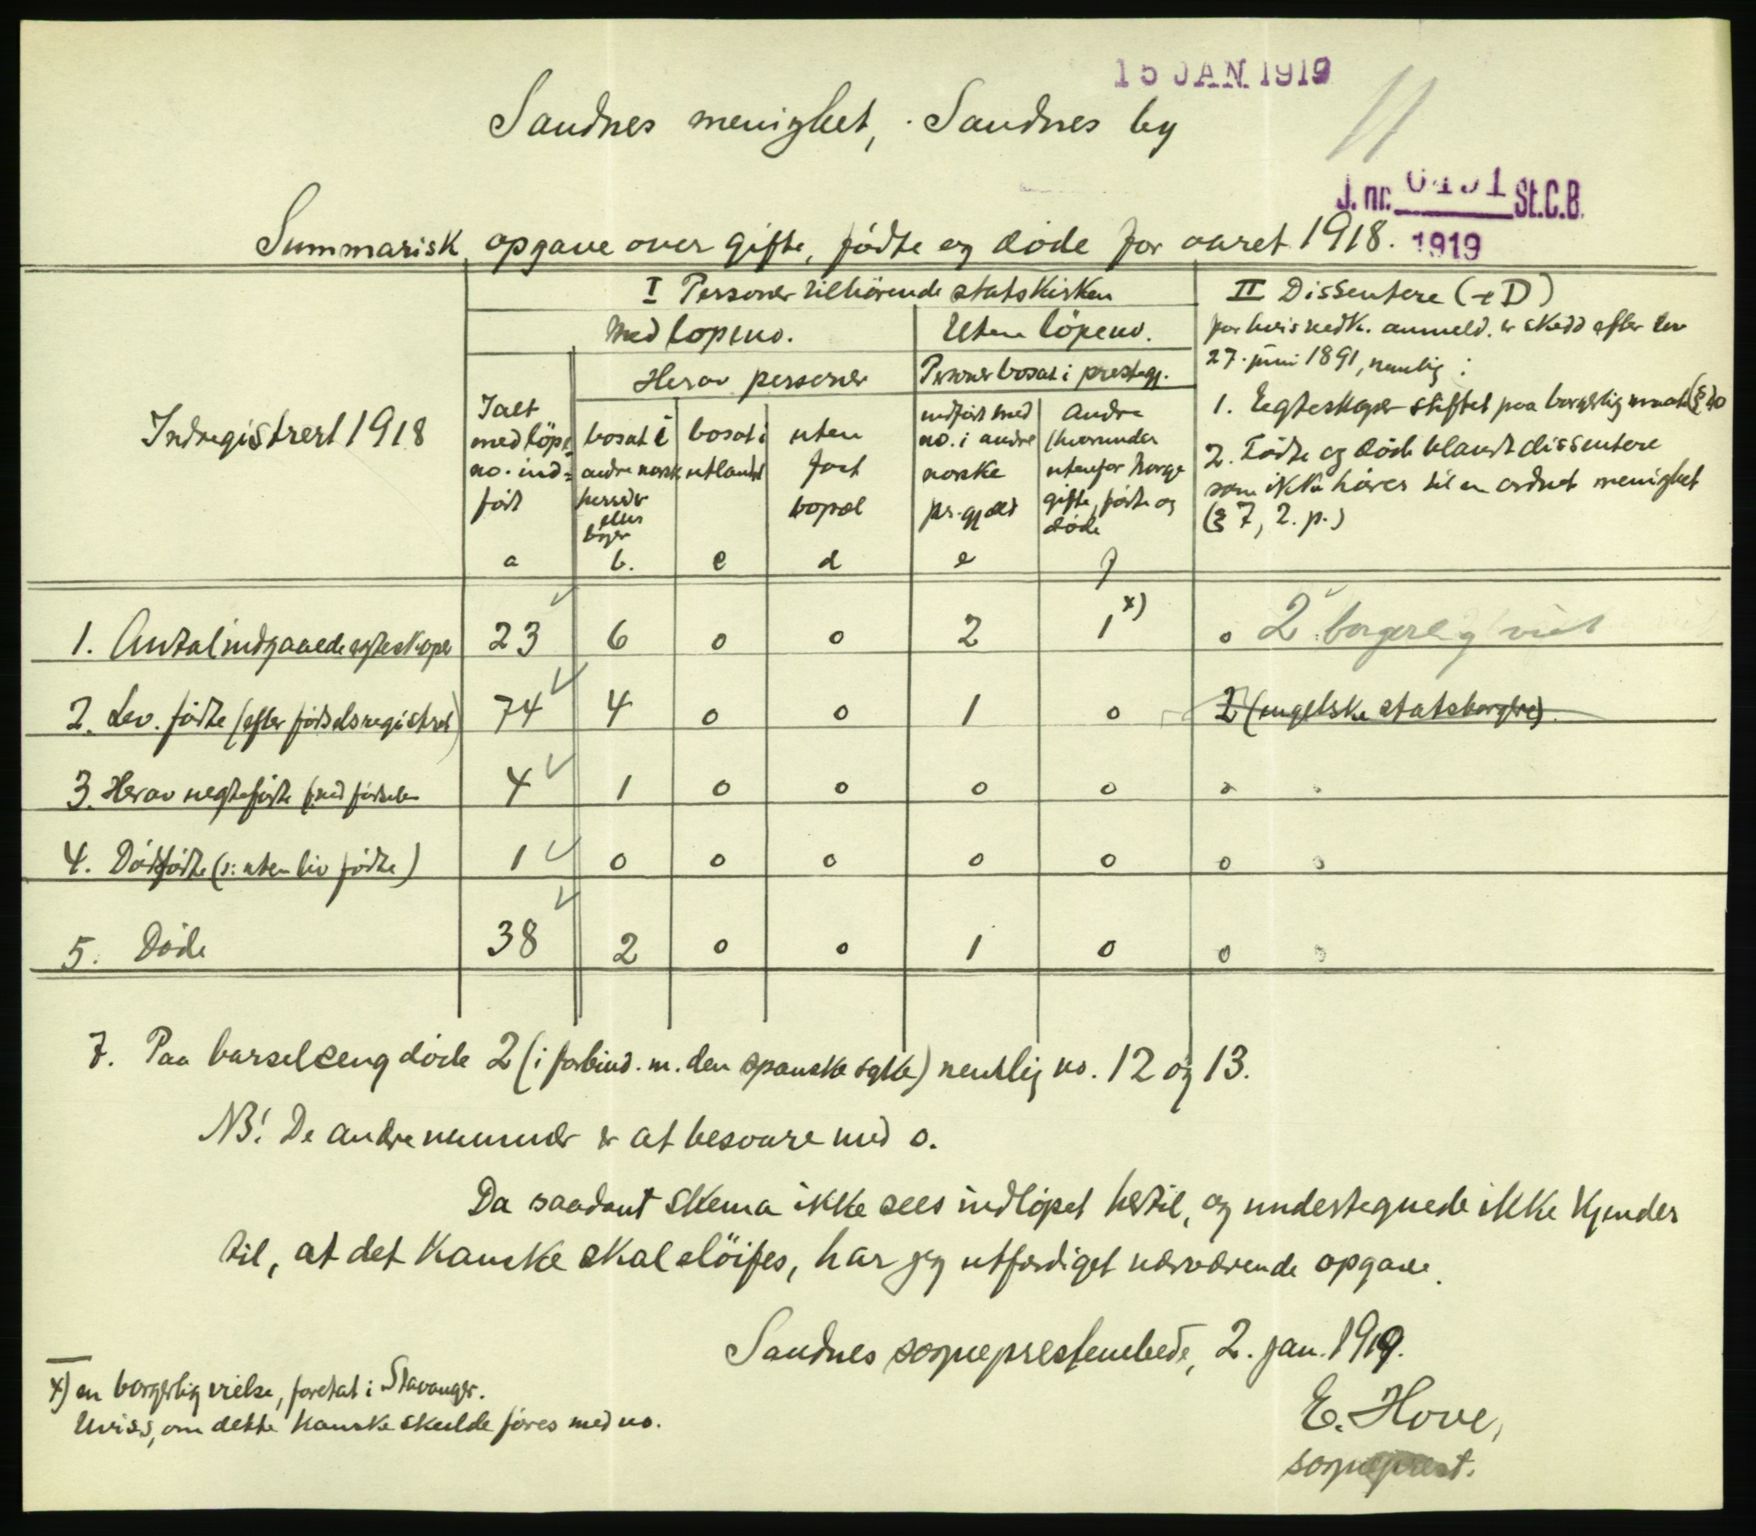 15 JAN 1919
Sandnes menighet, Sandnes by
J. nr. St.C.B.
1919
Summarisk opgave over gifte, födte og döde for aaret 1918.
I Personer tilhörende statskirken
II Dissentere (+D)
Med löpeno.
Uten löpeno.
for hvis vedk. anmeld. er skedd efter lov
27. juni 1891, nemlig:
Herav personer
Personer bosat i prestegj.
Indregistrert 1918
Ialt
med löpe
no. ind-
fört
bosat i
andre norske
herreder
eller
byer
bosat i
utlandet
uten
fast
bopæl
indfört med
no. i andre
norske
pr.gjæld
Andre
(hvorunder
utenfor Norge
gifte, födte og
döde
1. Egteskaper stiftet paa borgerlig maate (§ 10
2. Födte og döde blandt dissentere
som ikke hörer til en ordnet menighet
(§ 7, 2. p.)
a b. c d e f
1. Antal indgaaede egteskaper 23 6 0 0 2 1 x) 0 2 borgerlig viet
2. Lev. födte (efter födselsregistret) 74 4 0 0 1 0 2 (engelske statsborgere)
3. Herav uegtefödte (ved födselen 4 1 0 0 0 0 0 0
4. Dödfödte (o: uten liv födte) 1 0 0 0 0 0 0 0
5. Döde 38 2 0 0 1 0 0 0
7. Paa barselseng döde 2 (i forbind. m. den spanske syke) nemlig no. 12 og 13.
NB! De andre nummer er at besvare med 0.
Da saadant skema ikke sees indlöpet hertil, og undertegnede ikke kjender
til, at det kanske skal slöifes, har jeg utfærdiget nærværende opgave.
Sandnes sogneprestembede, 2. jan. 1919.
E. Hove,
sogneprest.
x) en borgerlig vielse, foretat i Stavanger.
Uviss, om dette kanske skulde föres med no.